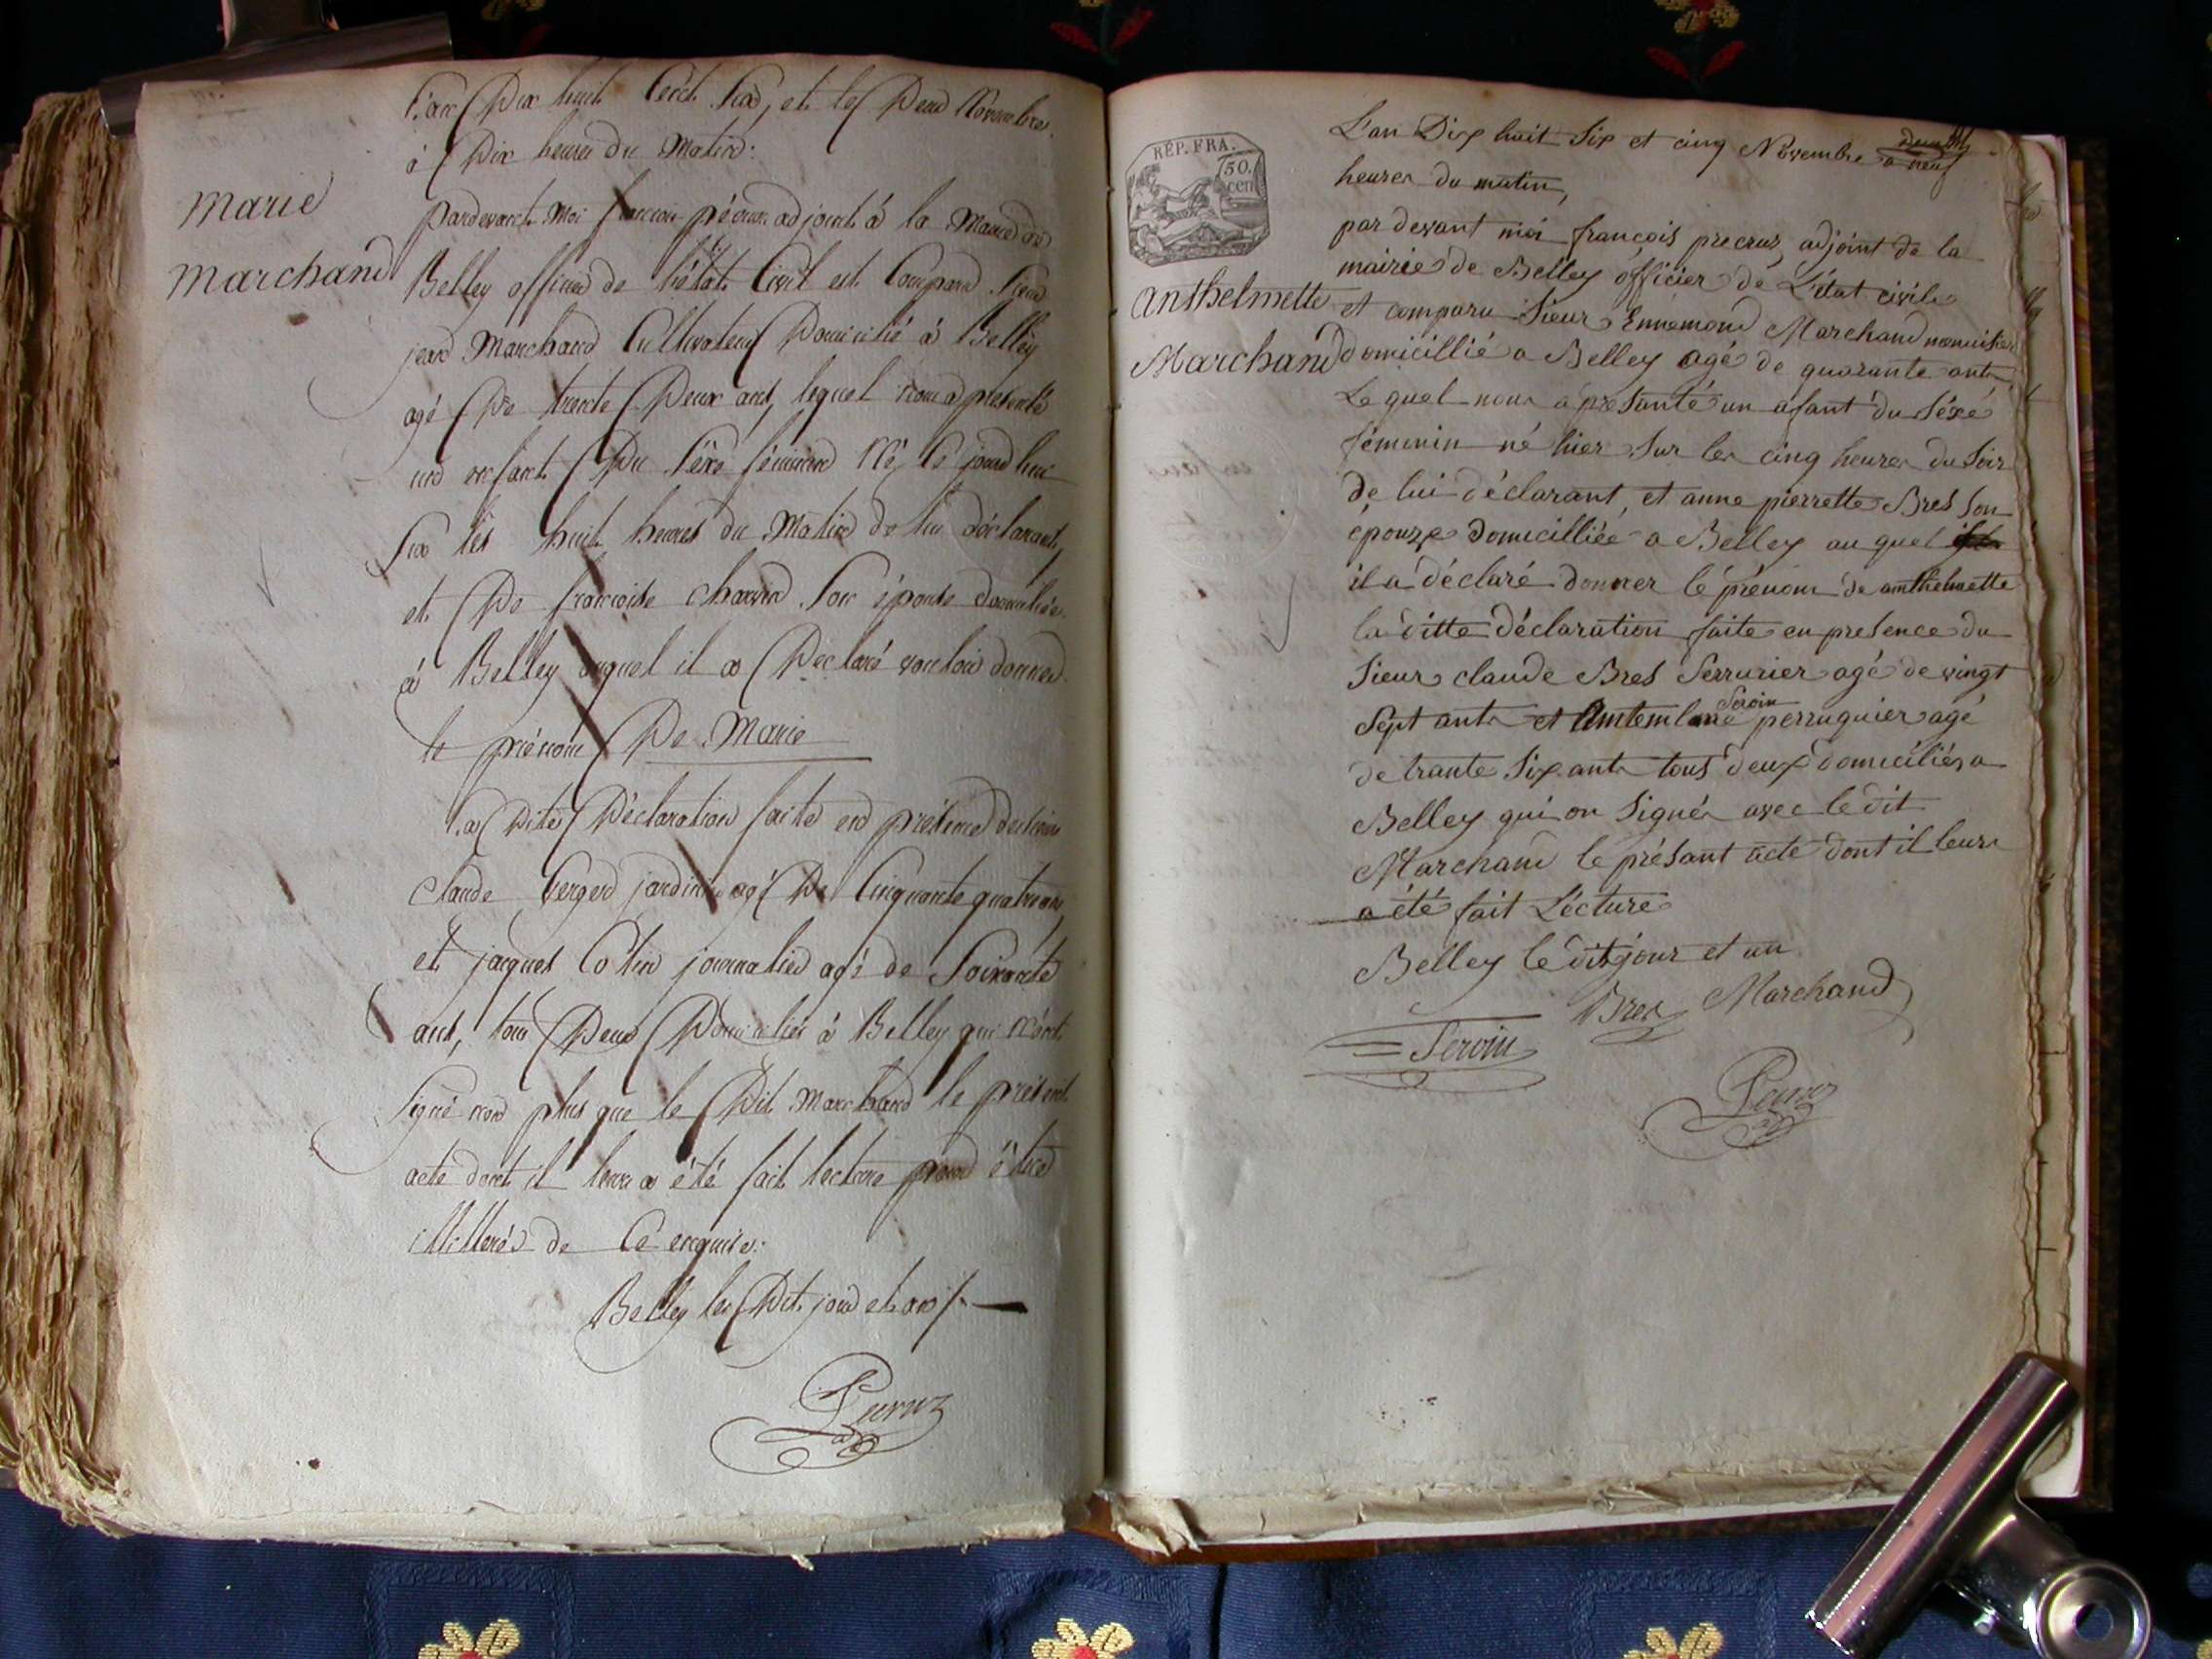 L'an Dix huit Cent Six, et le Deux Novembre
à Dix heures du Matin:
Marie
Marchand
pardevant Moi françois précruz adjoint à la Mairie de
Belley officier de l'état Civil est Comparu Sieur
jean Marchand Cultivateur Domicilié à Belley
agé De trente Deux ans, lequel nous a présenté
un enfant Du Séxe féminin Né, Ce jourdhui
Sur les huit heures du Matin de lui déclarant,
et De françoise charvin Son épouse domiciliée
à Belley auquel il a Déclaré vouloir donner
le prénom De Marie
La Dite Déclaration faite en présence de
Claude berger jardinier agé De Cinquante quatre ans
et jacques Cotin journalier agé de Soixante
ans, tous Deux Domiciliés à Belley qui N'ont
Signé non plus que le Dit Marchand le présent
acte dont il leur a été fait lecture pour être
illitterés de Ce enquis.
Belley les Dit jour et an /.
Precruz
REP. FRA.
50.
cen
L'an Dix huit Six et cinq Novembre a neuf
heures du matin,
par devant moi françois precruz, adjoint de la
mairie de Belley officier de L'état civile
Anthelmette
Marchand
et comparu Sieur Ennemond Marchand menuisier
domicillié a Belley agé de quarante ants
Le quel nous a présanté un afant du séxé
féminin né hier Sur les cinq heures du Soir
de lui déclarant, et anne pierrette Bres Son
épouze domicilliée a Belley au quel
il a déclaré donner le prénom de anthelmette
la ditte déclaration faite en presence du
Sieur claude Bres Serrurier agé de vingt
Sept ants et Antemlme Seroin perruquier agé
de trante Six ants tous deux domiciliés a
Belley qui on Signés avec le dit
Marchand le présant acte dont il leurs
a été fait Lécture
Belley le dit jour et an
Seroin Bres Marchand
Precruz